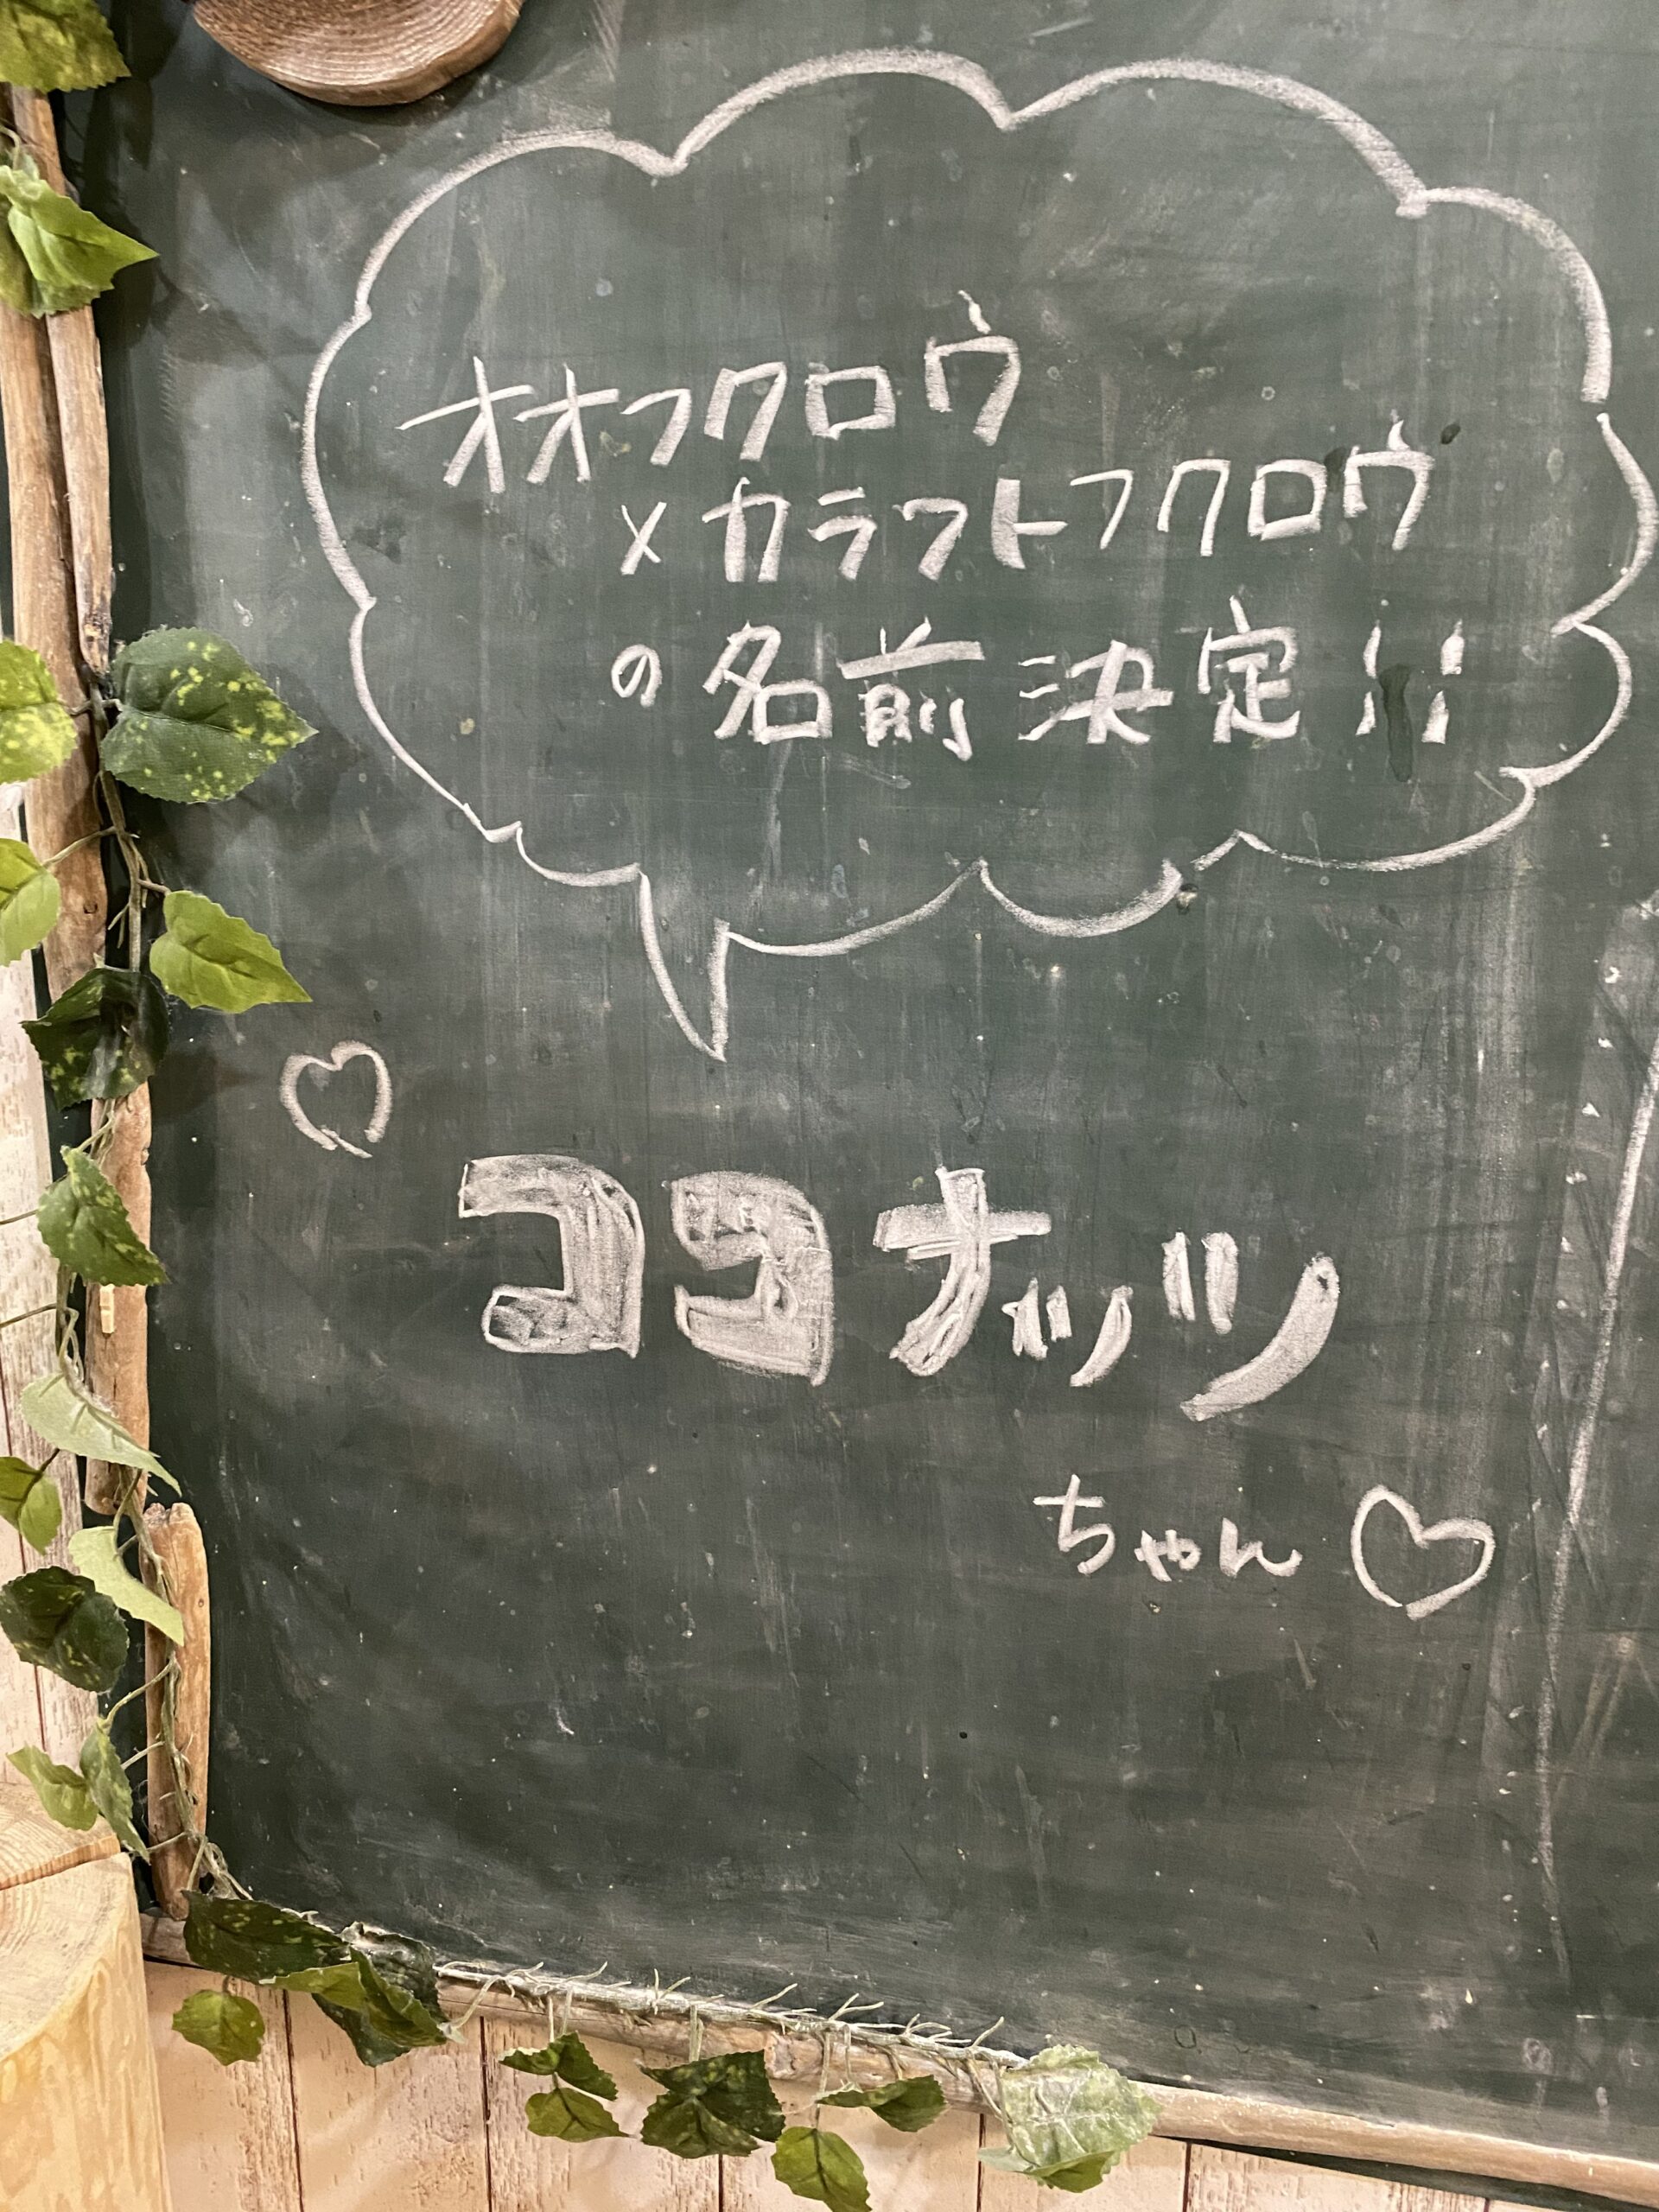 オオフクロウ
×カラフトフクロウ
の名前決定!!
ココナッツ
ちゃん♡